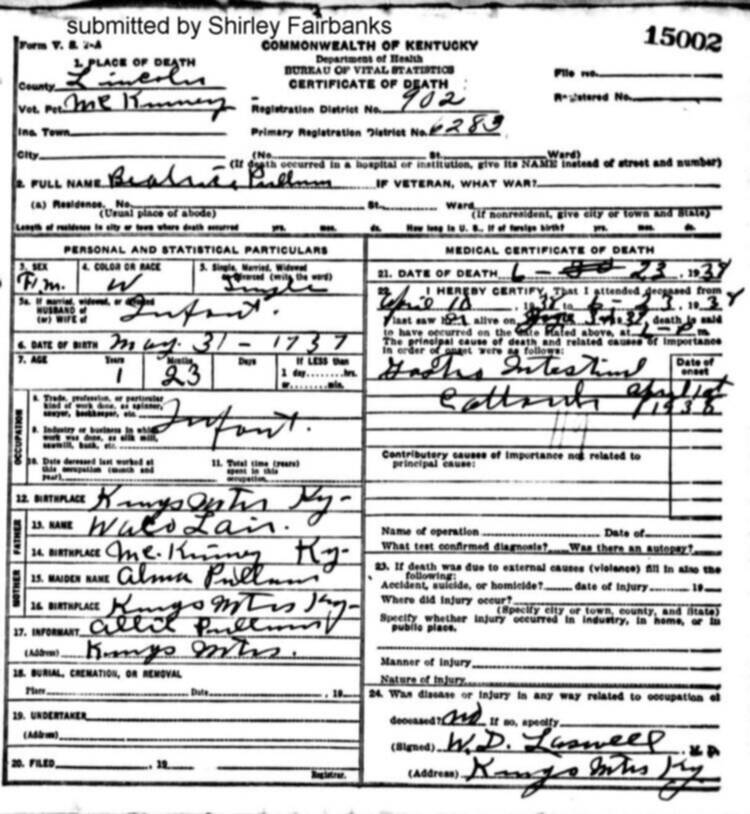 submitted by Shirley Fairbanks
15002
Form V. S. 1-A
COMMONWEALTH OF KENTUCKY
Department of Health
BUREAU OF VITAL STATISTICS
CERTIFICATE OF DEATH
File no.
Registered No.
1. PLACE OF DEATH
County Lincoln
Vot. Pct. Mc Kinney
Registration District No. 902
Inc. Town
Primary Registration District No. 6283
City (No. St. Ward)
(If death occurred in a hospital or institution, give its NAME instead of street and number)
2. FULL NAME Beatrice Pullum IF VETERAN, WHAT WAR?
(a) Residence. No. St. Ward
(Usual place of abode) (If nonresident, give city or town and State)
Length of residence in city or town where death occurred yrs. mos. ds. How long in U. S., if of foreign birth? yrs. mos. ds.
PERSONAL AND STATISTICAL PARTICULARS
3. SEX 4. COLOR OR RACE 5. Single, Married, Widowed
or Divorced (write the word)
Fm. W Single
5a. If married, widowed, or divorced
HUSBAND of
(or) WIFE of Infant.
6. DATE OF BIRTH May 31 - 1937
7. AGE Years Months Days If LESS than
1 23 1 day, hrs.
or min.
OCCUPATION
8. Trade, profession, or particular
kind of work done, as spinner,
sawyer, bookkeeper, etc.
Infant.
9. Industry or business in which
work was done, as silk mill,
sawmill, bank, etc.
10. Date deceased last worked at
this occupation (month and
year)
11. Total time (years)
spent in this
occupation
12. BIRTHPLACE Kings Mtns Ky-
FATHER
13. NAME Waco Lair.
14. BIRTHPLACE Mc. Kinney Ky-
MOTHER
15. MAIDEN NAME Alma Pullum
16. BIRTHPLACE Kings Mtns Ky-
17. INFORMANT Pullum
(Address) Kings Mtns.
18. BURIAL, CREMATION, OR REMOVAL
Place Date , 19
19. UNDERTAKER
(Address)
20. FILED , 19
Registrar.
MEDICAL CERTIFICATE OF DEATH
21. DATE OF DEATH 6 - 23, 1938
22. I HEREBY CERTIFY, That I attended deceased from
April 10, 1938 to 6 - 23, 1938
I last saw her alive on 1938 death is said
to have occurred on the date stated above, at 1-P m.
The principal cause of death and related causes of importance
in order of onset were as follows:
Date of
onset
Gastro Intestinal
Catarrh April 1st
1938
Contributory causes of importance not related to
principal cause:
Name of operation Date of
What test confirmed diagnosis? Was there an autopsy?
23. If death was due to external causes (violence) fill in also the
following:
Accident, suicide, or homicide? date of injury 19
Where did injury occur?
(Specify city or town, county, and State)
Specify whether injury occurred in industry, in home, or in
public place.
Manner of injury
Nature of injury
24. Was disease or injury in any way related to occupation of
deceased? No If so, specify
(Signed) W. D. Laswell, M. D.
(Address) Kings Mtns Ky